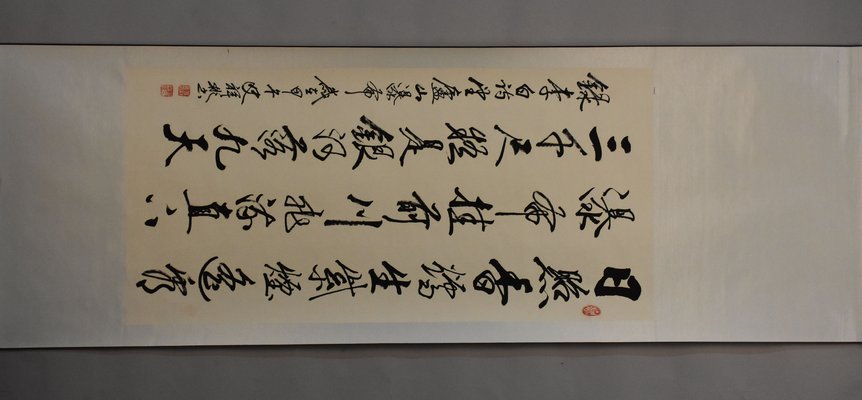 日照香爐生紫煙遙看
瀑布挂前川飛流直下
三千尺疑是銀河落九天
錄李白詩望廬山瀑布 歲在甲午